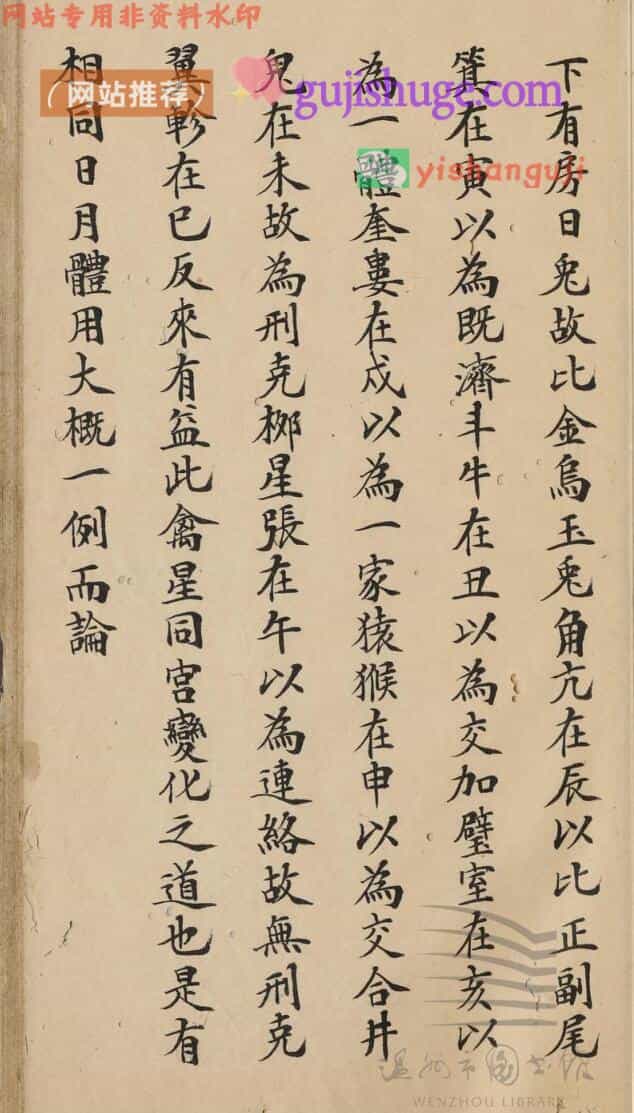 网站专用非资料水印
（网站推荐）
gujishuge.com
yishanguji
下有房日兔故比金烏玉兔角亢在辰以比正副尾
箕在寅以為既濟斗牛在丑以為交加璧室在亥以
為一體奎婁在戍以為一家猿猴在申以為交合井
鬼在未故為刑克栁星張在午以為連絡故無刑克
翼軫在巳反來有益此禽星同宮變化之道也是有
相同日月體用大概一例而論
温州市图书馆
WENZHOU LIBRARY